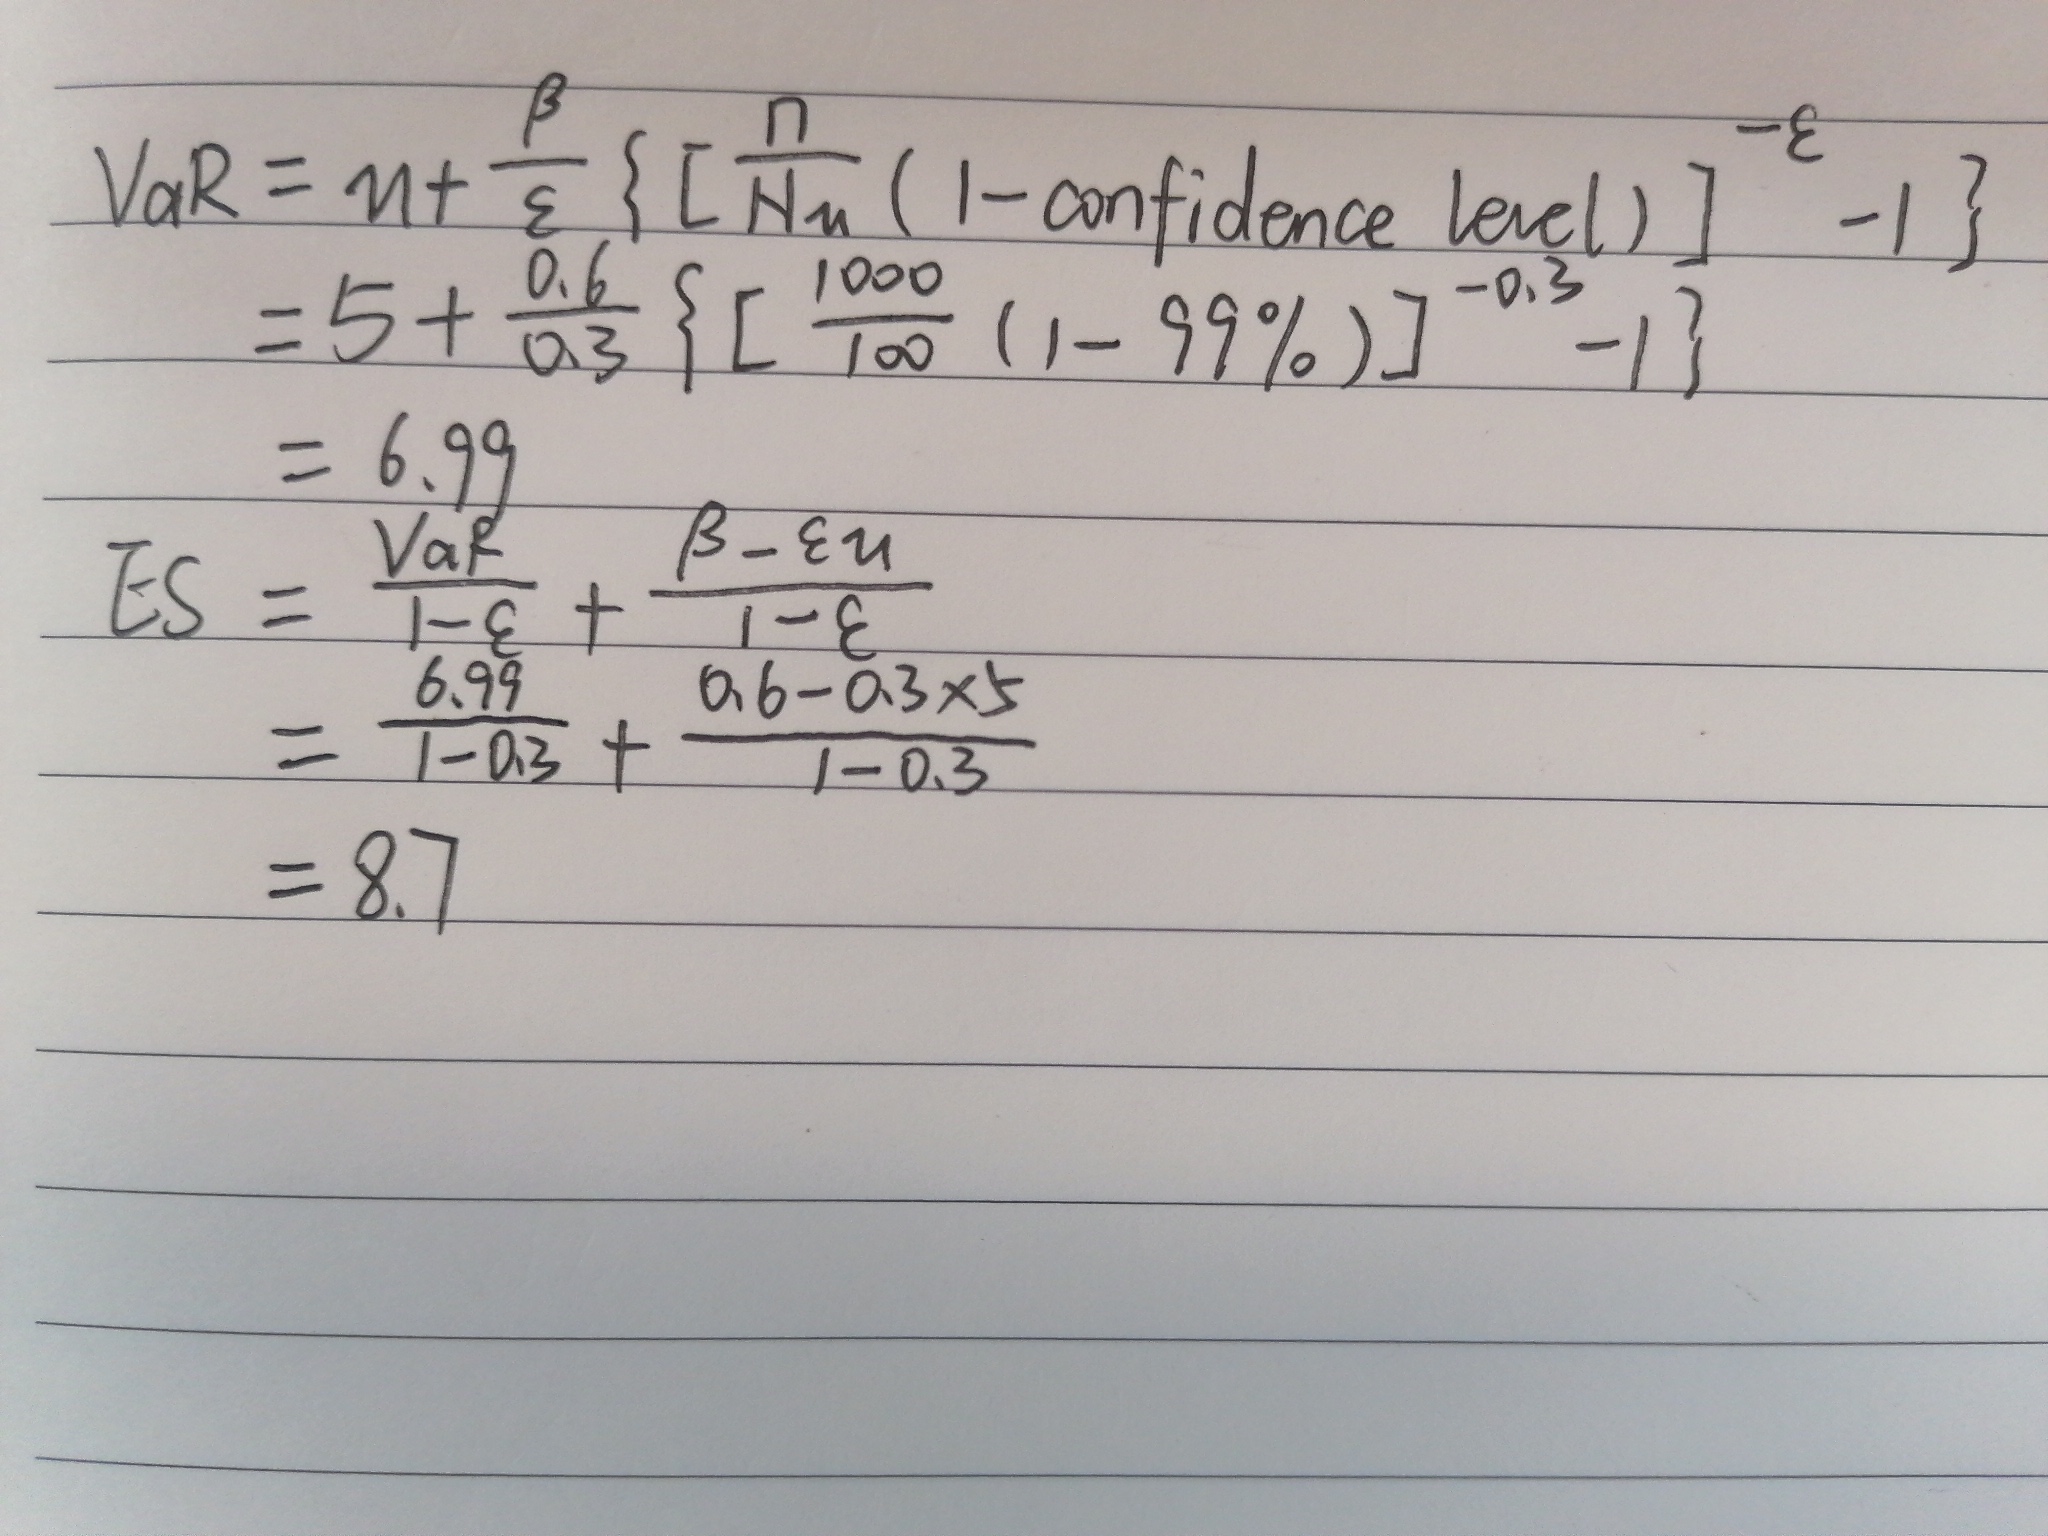 VaR = u + β/ε {[n/Nu (1 - confidence level)]^-ε - 1}
= 5 + 0.6/0.3 {[1000/100 (1 - 99%)]^-0.3 - 1}
= 6.99
ES = VaR/1-ε + β-εu/1-ε
= 6.99/1-0.3 + 0.6-0.3×5/1-0.3
= 8.7